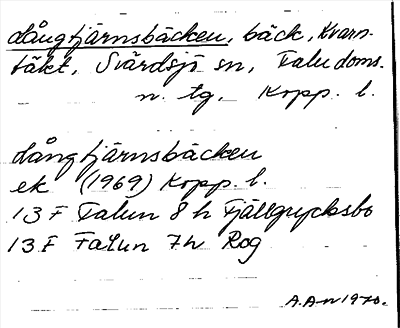 Långtjärnsbäcken, bäck, Kvarn-
täkt, Svärdsjö sn, Falu doms.
n. tg. Kopp. l.
Långtjärnsbäcken
ek (1969) Kopp. l.
13 F Falun 8 h Fjällgrycksbo
13 F Falun 7 h Rog
A.A-n 1970.